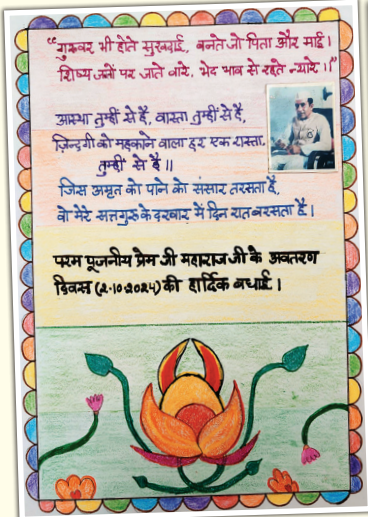 “गुरुवर भी होते सुखदाई, बनते जो पिता और माई।
शिष्य जनों पर जाते वारे, भेद भाव से रहते न्यारे।।”
आस्था तुम्हीं से है, वास्ता तुम्हीं से है,
ज़िन्दगी को महकाने वाला हर एक रास्ता,
तुम्हीं से है।।
जिस अमृत को पाने को संसार तरसता है,
वो मेरे सतगुरु के दरबार में दिन रात बरसता है।
परम पूजनीय प्रेम जी महाराज जी के अवतरण
दिवस (2·10·2024) की हार्दिक बधाई।